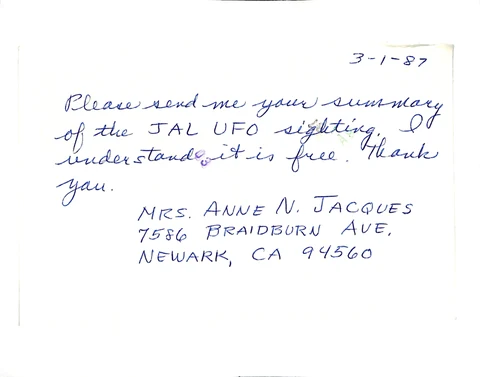 3-1-87
Please send me your summary
of the JAL UFO sighting. I
understand it is free. Thank
you.
MRS. ANNE N. JACQUES
7586 BRAIDBURN AVE.
NEWARK, CA 94560